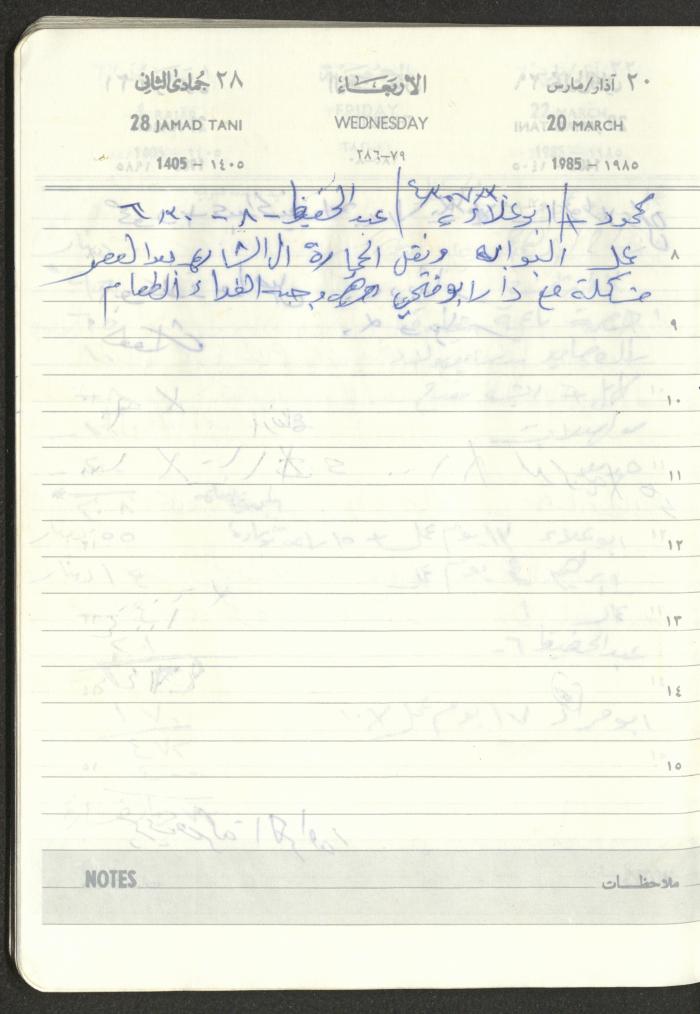 ٢٨ جمادى الثاني الأربعاء ٢٠ آذار/مارس
28 JAMAD TANI WEDNESDAY 20 MARCH
1405 – ١٤٠٥ ٧٩-٢٨٦ 1985 – ١٩٨٥
محمود / ابو علاء / عبد الحفيظ - ٨ -
على البوابه ونقل الحجارة الى الشارع بعد العصر
٨
مشكلة مع دار ابو فتحي وجبة الغداء الطعام
٩
١٠
١١
١٢
١٣
١٤
١٥
NOTES ملاحظات